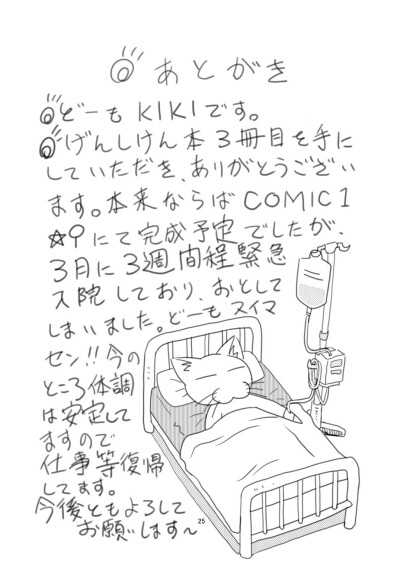 あとがき
どーもKIKIです。
げんしけん本3冊目を手に
していただき、ありがとうござい
ます。本来ならばCOMIC1
☆9にて完成予定でしたが、
3月に3週間程緊急
入院しており、おとして
しまいました。どーもスイマ
セン!!今の
ところ体調
は安定して
ますので
仕事等復帰
してます。
今後ともよろしく
お願いします~
25